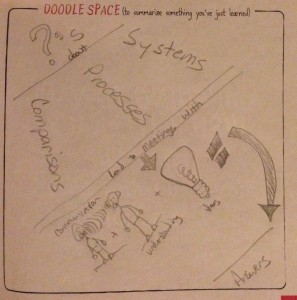 DOODLE SPACE (to summarize something you've just learned)
?'s
about
Systems
Processes
Comparisons
Lead → meeting with
Communication
+
understanding
+
Ideas
Answers